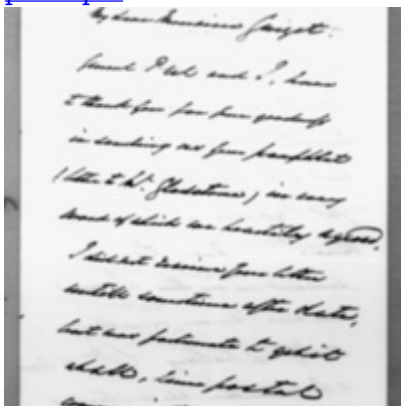 My dear Monsieur Guizot:
and I, have
to thank you for your goodness
in sending us your pamphlet
(letter to Mr. Gladstone) in every
word of which we heartily agreed.
I did not receive your letter
until sometime after date,
but was fortunate to get it
at all, since postal